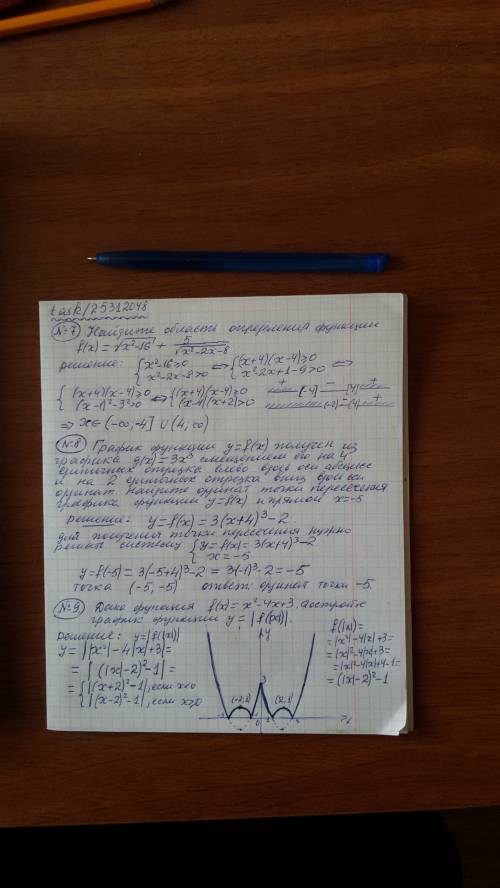 task/25312048
№7 Найдите область определения функции
f(x) = √x²-16 + 5/√x²-2x-8
решение: { x²-16≥0 x²-2x-8>0 ⇔ { (x+4)(x-4)≥0 x²-2x+1-9>0 ⇔
{ (x+4)(x-4)≥0 (x-1)²-3²>0 ⇔ { (x+4)(x-4)≥0 (x-4)(x+2)>0 + [-4] − [4] + + (-2) − (4) +
⇒ x∈(-∞,-4] ∪ (4,∞)
№8 График функции y=f(x) получен из
графика g(x)=3x³ смещением его на 4
единичных отрезка влево вдоль оси абсцисс
и на 2 единичных отрезка вниз вдоль оси
ординат. Найдите ординат точки пересечения
графика функции y=f(x) и прямой x=-5
Решение: y=f(x) = 3(x+4)³-2
для получения точки пересечения нужно
решить систему { y=f(x)=3(x+4)³-2
x=-5
y=f(-5) = 3(-5+4)³-2 = 3(-1)³-2 = -5
точка (-5,-5) ответ: ординат точки -5.
№9 Дана функция f(x)=x²-4x+3. Постройте
график функции y=|f(|x|)|.
Решение: y=|f(|x|)|
y = ||x²|-4|x|+3| =
= |(|x|-2)²-1| =
= { |(x+2)²-1|, если x<0
|(x-2)²-1|, если x≥0
y
3
(-2,1) (2,1)
0
x
f(|x|)=
=|x²|-4|x|+3=
=|x|²-4|x|+3=
=|x|²-4|x|+4-1=
=(|x|-2)²-1